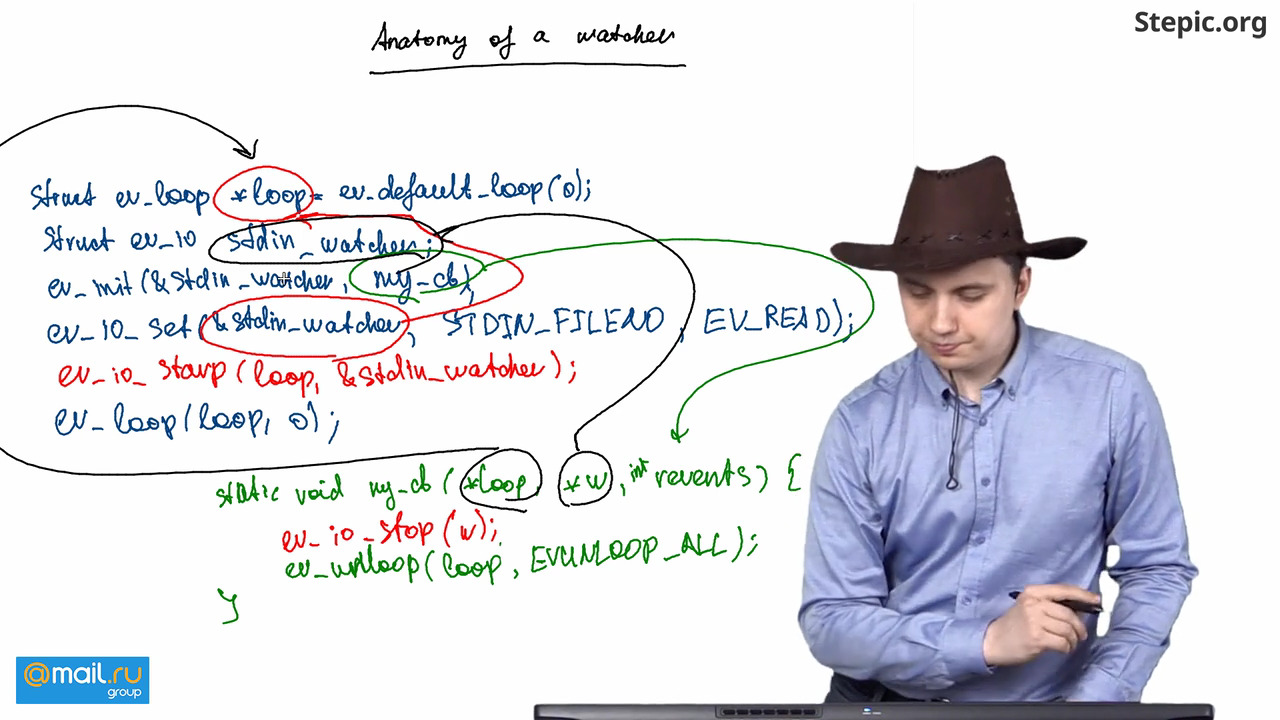 Stepic.org
Anatomy of a watcher
struct ev_loop *loop = ev_default_loop(0);
struct ev_io stdin_watcher;
ev_init(&stdin_watcher, my_cb);
ev_io_set(&stdin_watcher, STDIN_FILENO, EV_READ);
ev_io_starp(loop, &stdin_watcher);
ev_loop(loop, 0);
static void my_cb(*loop, *w, int revents) {
ev_io_stop(w);
ev_unloop(loop, EVUNLOOP_ALL);
}
@mail.ru
group